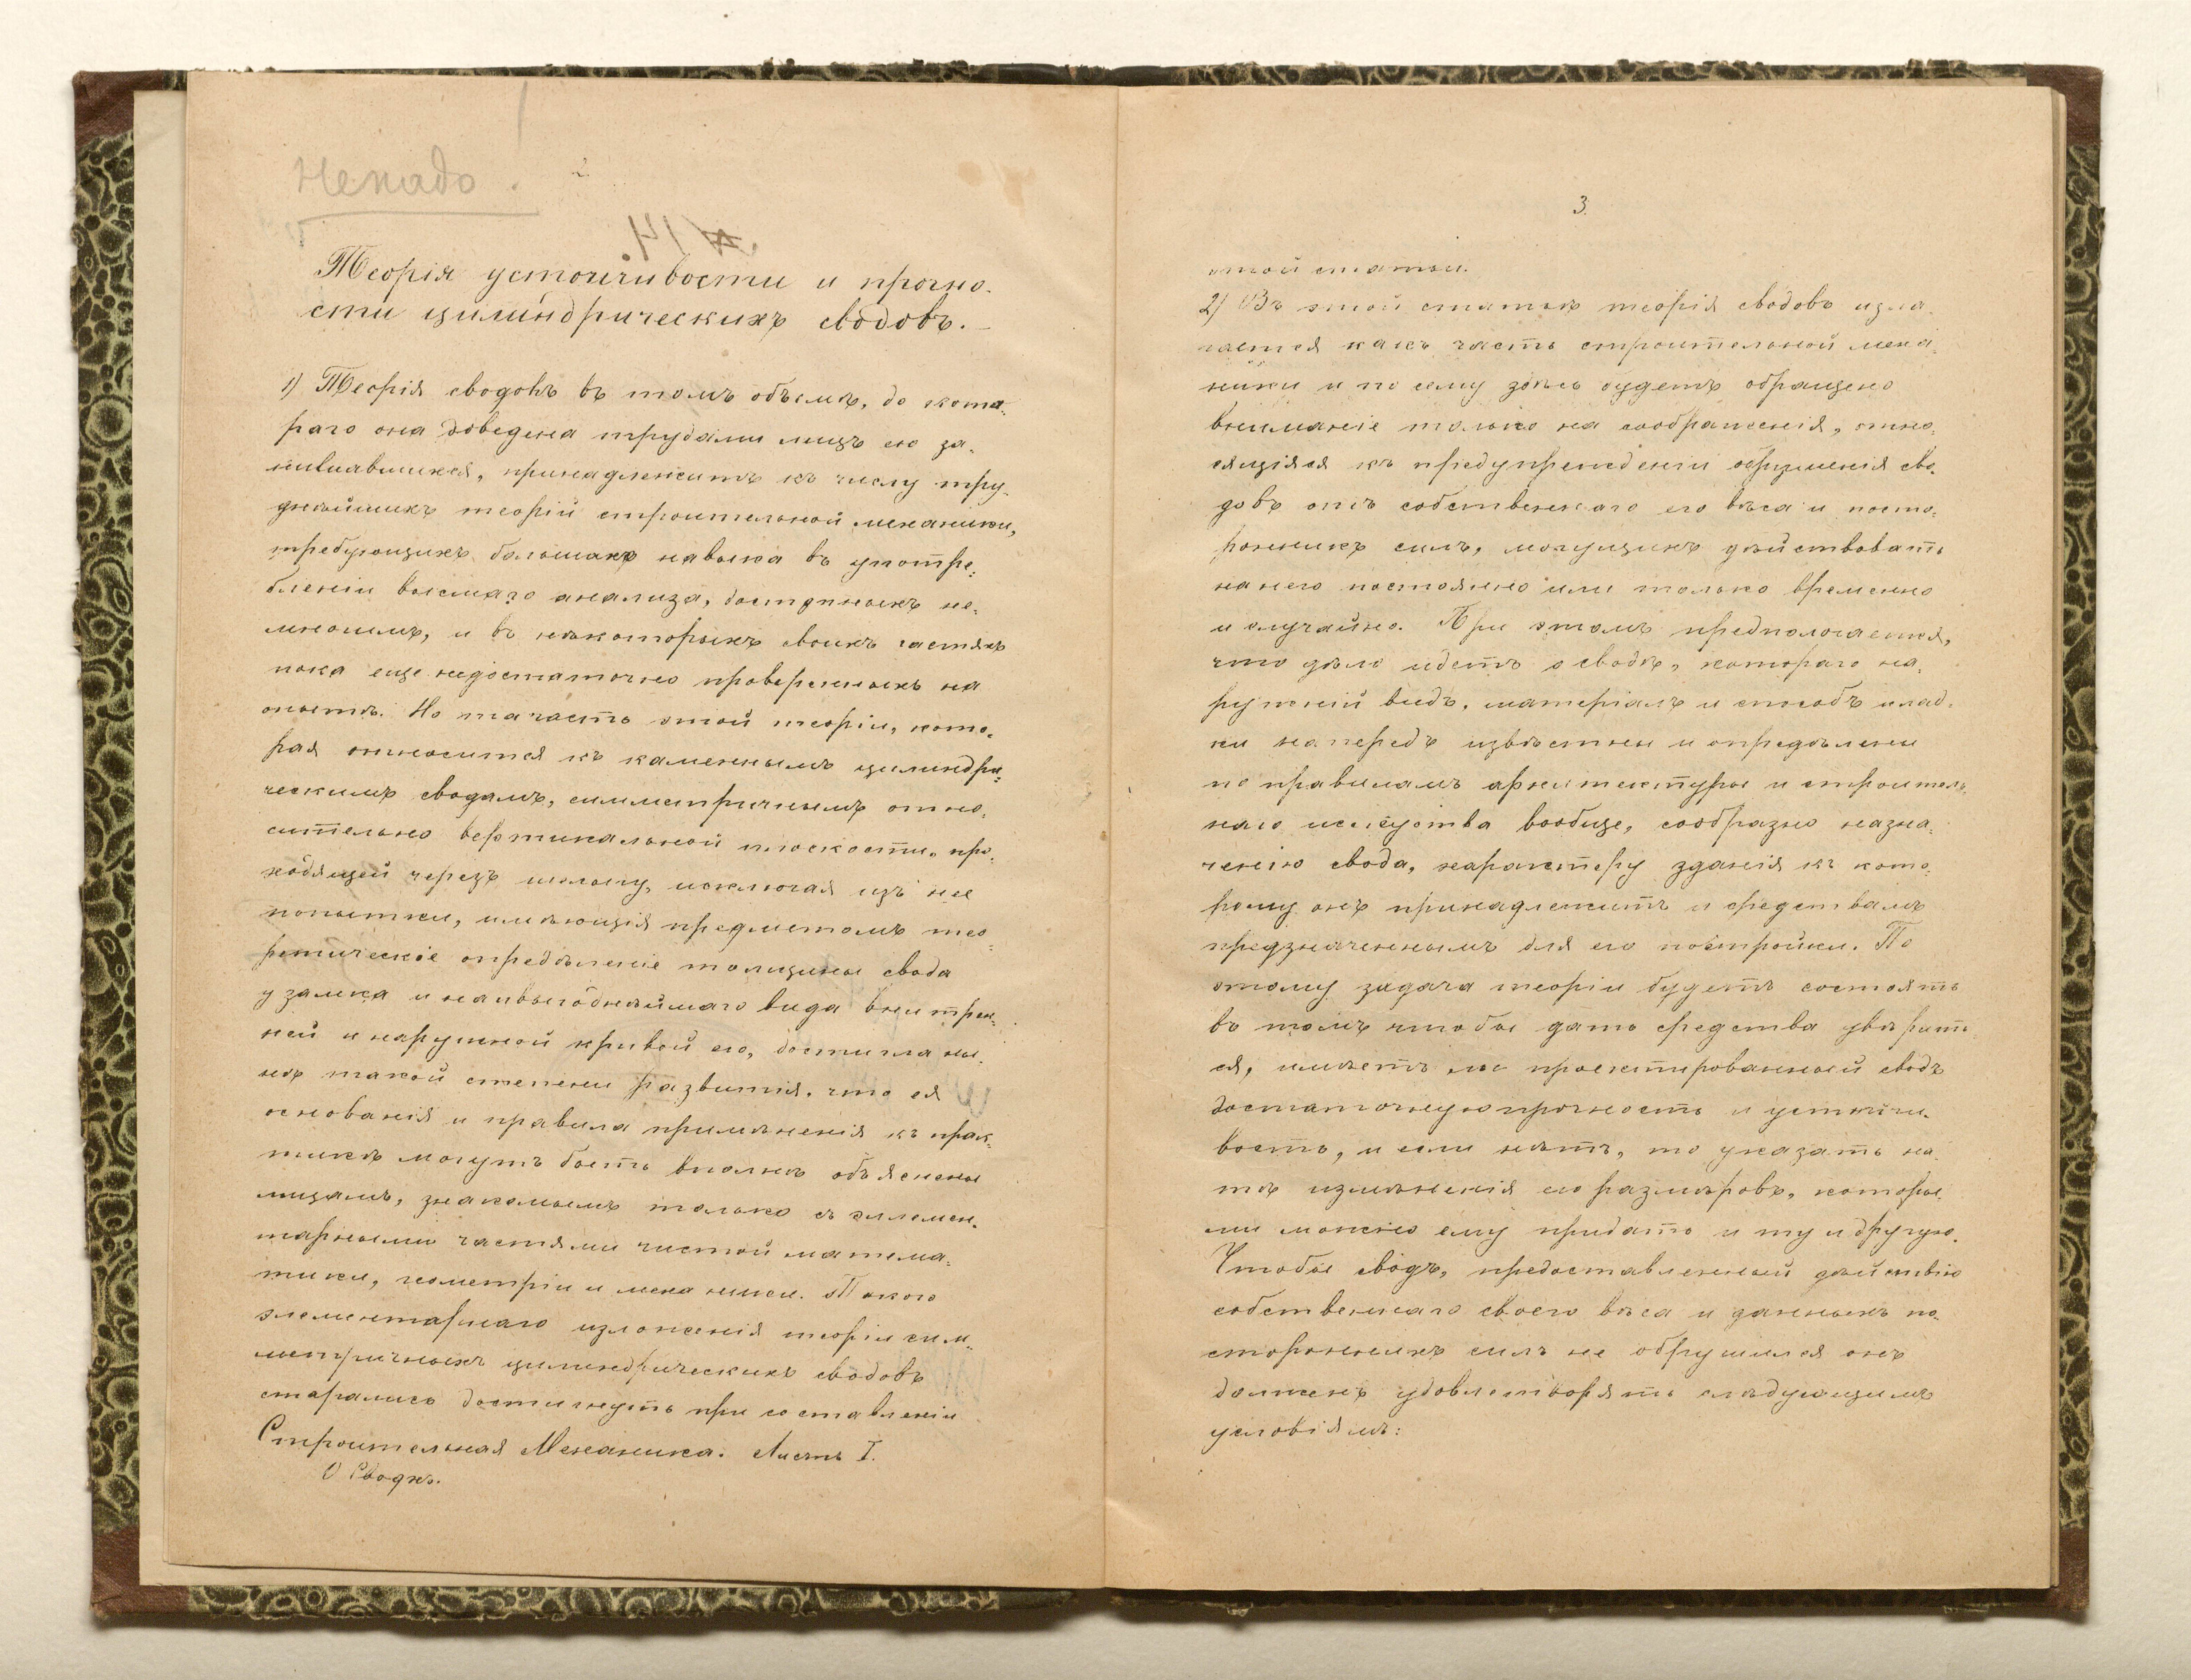 Ненадо!
2.
Теорія устоичивости и прочно-
сти цилиндрическихъ сводовъ.
1) Теорія сводовъ въ томъ объемѣ, до кото-
раго она доведена трудами лицъ ею за-
нимавшихся, принадлежитъ къ числу тру-
днѣйшихъ теорій строительной механики,
требующихъ большаго навыка въ употре-
бленіи высшаго анализа, доступныхъ не-
многимъ, и въ нѣкоторыхъ своихъ частяхъ
пока еще недостаточно проверенныхъ на
опытѣ. Но та часть этой теоріи, кото-
рая относится къ каменнымъ цилиндри-
ческимъ сводамъ, симметричнымъ отно-
сительно вертикальной плоскости, про-
ходящей черезъ шелыгу, исключая изъ нее
попытки, имѣющія предметомъ тео-
ретическіе опредѣленіе толщины свода
у замка и наивыгоднѣйшаго вида внутрен-
ней и наружной кривой его, достигла ны-
нѣ такой степени развитія, что ея
основанія и правила примѣненія къ прак-
тикѣ могутъ быть вполнѣ объяснены
лицамъ, знакомымъ только съ элемен-
тарными частями чистой матема-
тики, геометріи и механики. Такого
элементарнаго изложенія теоріи сим-
метричныхъ цилиндрическихъ сводовъ
старались достигнуть при составленіи
Строительная Механика. Листъ I.
О Сводхъ.
3.
этой статьи.
2) Въ этой статьѣ теорія сводовъ изла-
гается какъ часть строительной меха-
ники и по сему здѣсь будетъ обращено
вниманіе только на соображенія, отно-
сящіяся къ предупрежденіи обрушенія сво-
довъ отъ собственнаго его вѣса и посто-
роннихъ силъ, могущихъ дѣйствовать
на него постоянно или только временно
и случайно. При этомъ предпологается,
что дѣло идетъ о сводѣ, котораго на-
ружній видъ, матеріалъ и способъ клад-
ки напередъ извѣстны и опредѣлены
по правиламъ архитектуры и строитель-
наго исскуства вообще, сообразно назна-
ченію свода, характеру зданія къ кото-
рому онъ принадлежитъ и средствамъ
предзначеннымъ для его постройки. По
этому задача теоріи будетъ состоять
въ томъ чтобы дать средства увѣрить-
ся, имѣетъ ли проектированный сводъ
достаточную прочность и устойчи-
вость, и если нѣтъ, то указать на
тѣ измѣненія его размѣровъ, которы-
ми можно ему придать и ту и другую.
Чтобы сводъ, предоставленный дѣйствію
собственнаго своего вѣса и данныхъ по-
стороннихъ силъ не обрушился онъ
долженъ удовлетворять слѣдующимъ
условіямъ: